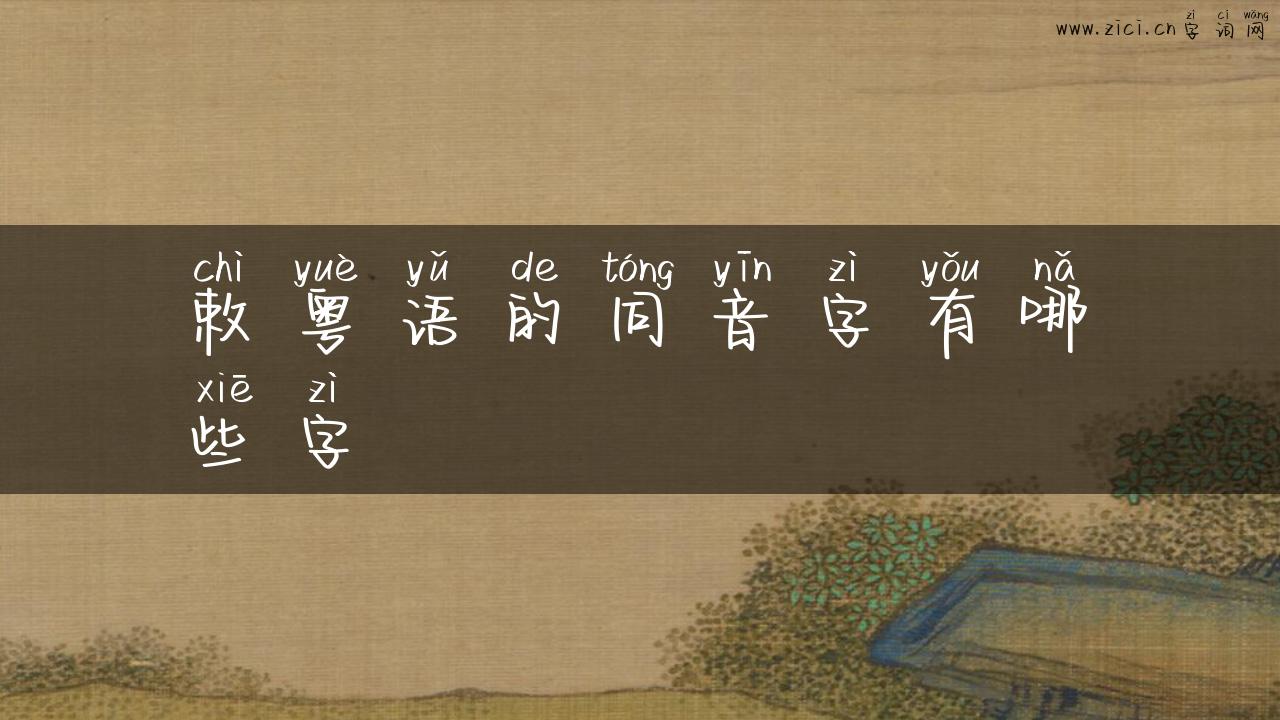 zì cí wǎng
www.zici.cn字词网
chì yuè yǔ de tóng yīn zì yǒu nǎ
敕粤语的同音字有哪
xiē zì
些字